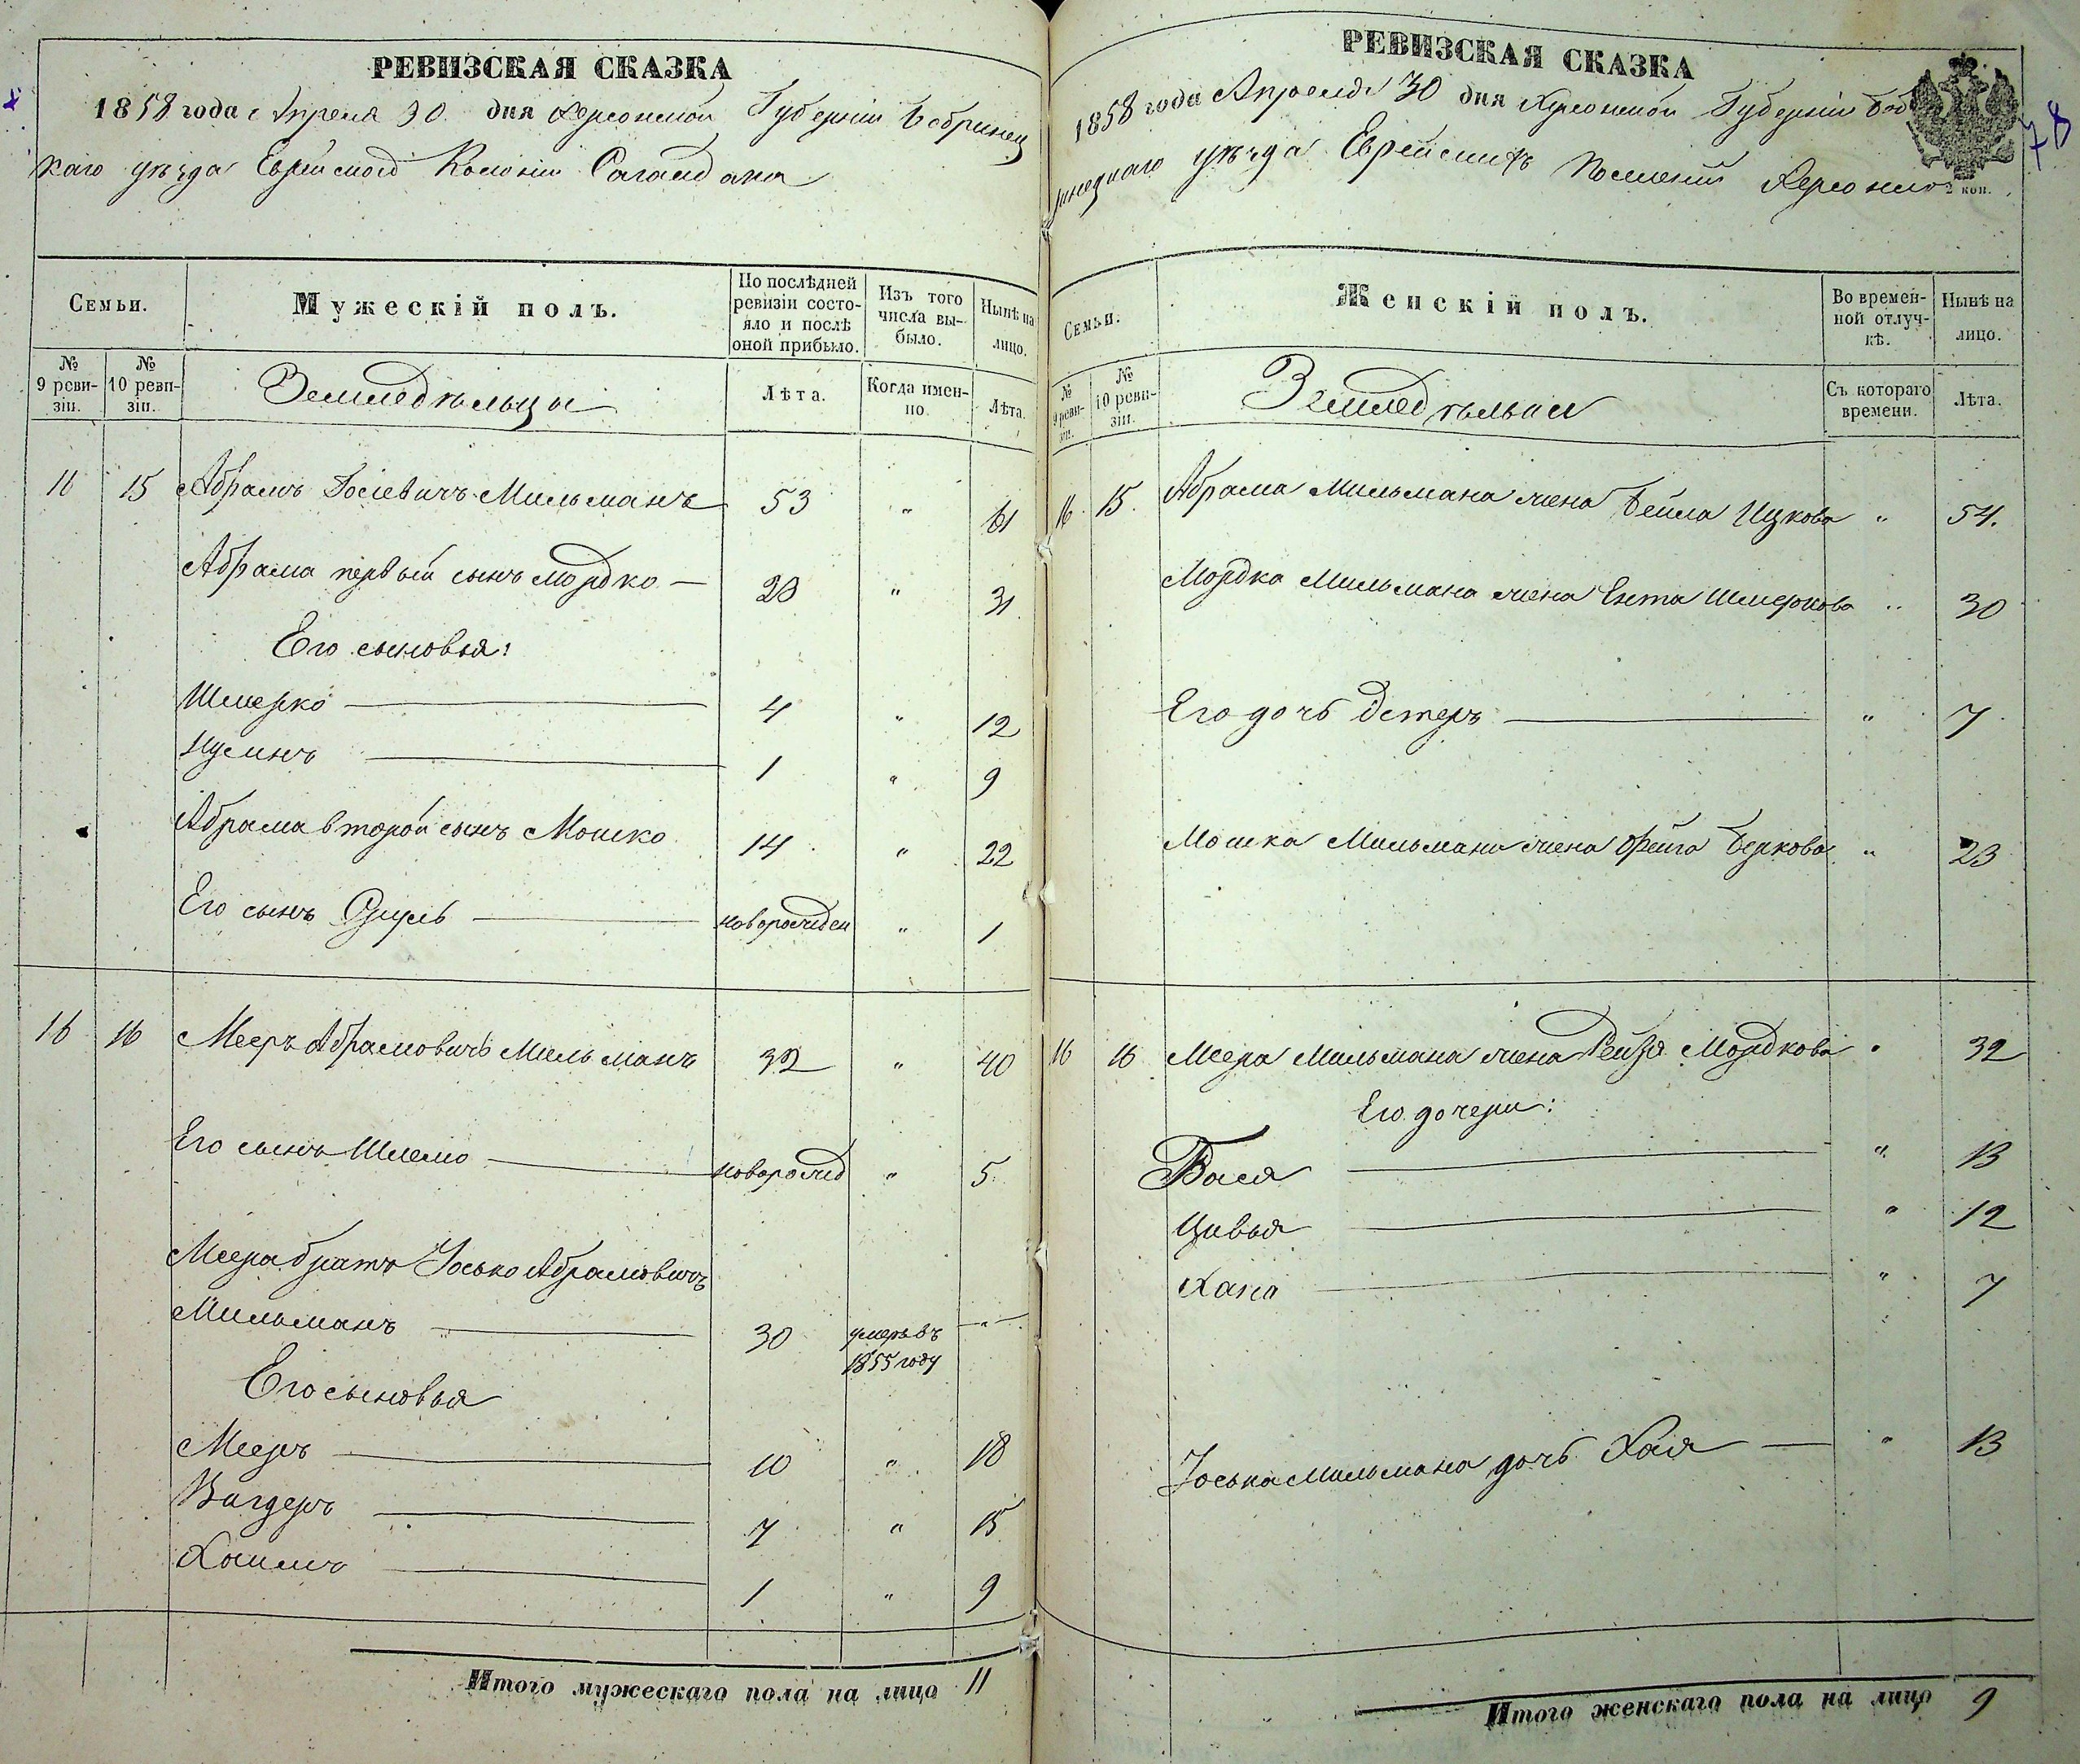 РЕВИЗСКАЯ СКАЗКА
1858 года Апреля 30 дня Херсонской Губерніи Бобринец
каго уѣзда Еврейской Колоніи Сагайдака
Семьи.
Мужескій полъ.
По послѣдней ревизіи состояло и послѣ оной прибыло.
Изъ того числа выбыло.
Нынѣ на лицо.
№ 9 ревизіи.
№ 10 ревизіи.
Земледѣльцы
Лѣта.
Когда именно.
Лѣта.
11 15 Абрамъ Іосіевичъ Мильманъ 53 " 61
Абрама первый сынъ Мордко — 23 " 31
Его сыновья:
Шмерко — 4 " 12
— 1 " 9
Абрама второй сынъ Мошко 14 " 22
Его сынъ — новорожден " 1
16 16 Мееръ Абрамовичъ Мильманъ 32 " 40
Его сынъ Шлемо — новорожд " 5
Меера братъ Іосько Абрамовичъ
Мильманъ — 30 умеръ въ — " —
1855 году
Его сыновья
Мееръ — 10 " 18
Вигдеръ — 7 " 15
Хаимъ — 1 " 9
Итого мужескаго пола на лицо 11
РЕВИЗСКАЯ СКАЗКА
78
1858 года Апреля 30 дня Херсонской Губерніи Боб
ринецкаго уѣзда Еврейскихъ Поселеній
2 коп.
Семьи.
Женскій полъ.
Во временной отлучкѣ.
Нынѣ на лицо.
№ 9 ревизіи.
№ 10 ревизіи.
Земледѣльцы
Съ котораго времени.
Лѣта.
16 15 Абрама Мильмана жена Бейла Ицкова " 54.
Мордка Мильмана жена Ента Шмеркова " 30
Его дочь Эстеръ — " 7
Мошка Мильмана жена Фейга Беркова " 23
16 16 Меера Мильмана жена Рейзя Мордкова " 32
Его дочери:
Бася — " 13
Цивья — " 12
Хана — " 7
Іоська Мильмана дочь Хая — " 13
Итого женскаго пола на лицо 9